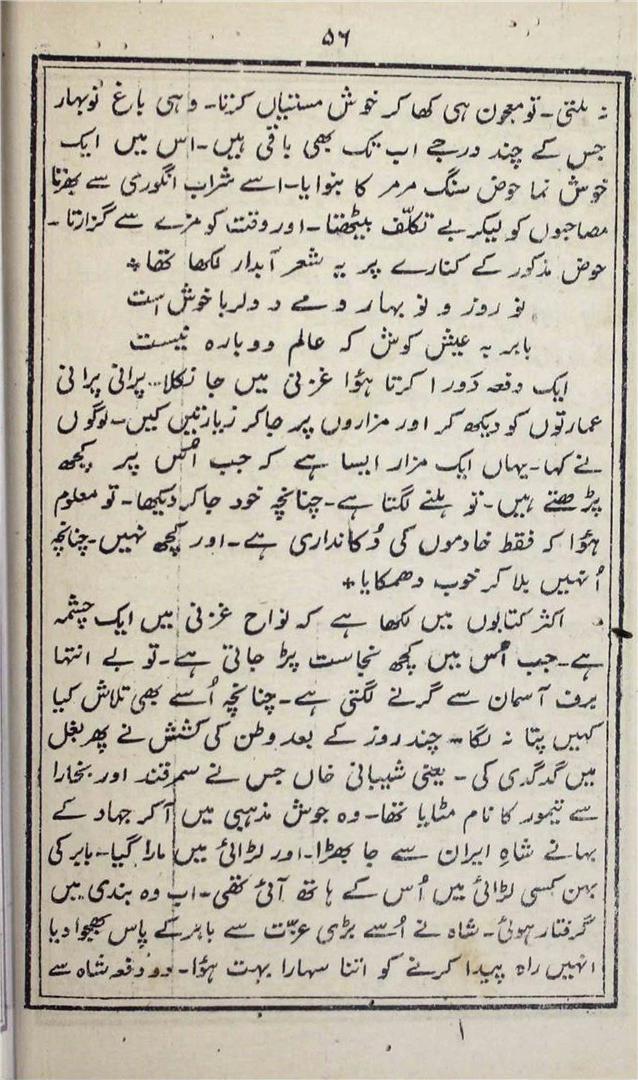 ۵۶
نہ ملتی۔ تو معجون ہی کھا کر خوش مستیاں کرتا۔ وہی باغ نوبہار
جس کے چند درجے اب تک بھی باقی ہیں۔ اس میں ایک
خوش نما حوض سنگ مرمر کا بنوایا۔ اسے شراب انگوری سے بھرتا
مصاحبوں کو لیکر بے تکلّف بیٹھتا۔ اور وقت کو مزے سے گزارتا۔
حوض مذکور کے کنارے پر یہ شعر آبدار لکھا تھا*
نو روز و نو بہار و مے و دلربا خوش است
بابر بہ عیش کوش کہ عالم دوبارہ نیست
ایک دفعہ دَورا کرتا ہؤا غزنی میں جا نکلا۔ پرانی پرانی
عمارتوں کو دیکھ کر اور مزاروں پر جاکر زیارتیں کیں۔ لوگوں
نے کہا۔ یہاں ایک مزار ایسا ہے کہ جب اُس پر کچھ
پڑھتے ہیں۔ تو ہلنے لگتا ہے۔ چنانچہ خود جاکر دیکھا۔ تو معلوم
ہؤا کہ فقط خادموں کی دُکانداری ہے۔ اور کچھ نہیں۔ چنانچہ
اُنہیں بلا کر خوب دھمکایا*
اکثر کتابوں میں لکھا ہے کہ نواح غزنی میں ایک چشمہ
ہے۔ جب اُس میں کچھ نجاست پڑ جاتی ہے۔ تو بے انتہا
برف آسمان سے گرنے لگتی ہے۔ چنانچہ اُسے بھی تلاش کیا
کہیں پتا نہ لگا۔ چند روز کے بعد وطن کی کشش نے پھر بغل
میں گدگدی کی۔ یعنی شیبانی خاں جس نے سمرقند اور بخارا
سے تیمور کا نام مٹایا تھا۔ وہ جوش مذہبی میں آکر جہاد کے
بہانے شاہِ ایران سے جا بھڑا۔ اور لڑائی میں مارا گیا۔ بابر کی
بہن کسی لڑائی میں اُس کے ہاتھ آئی تھی۔ اب وہ بندی میں
گرفتار ہوئی۔ شاہ نے اُسے بڑی عزّت سے بابر کے پاس بھجوا دیا
انہیں راہ پیدا کرنے کو اتنا سہارا بہت ہؤا۔ دو دفعہ شاہ سے